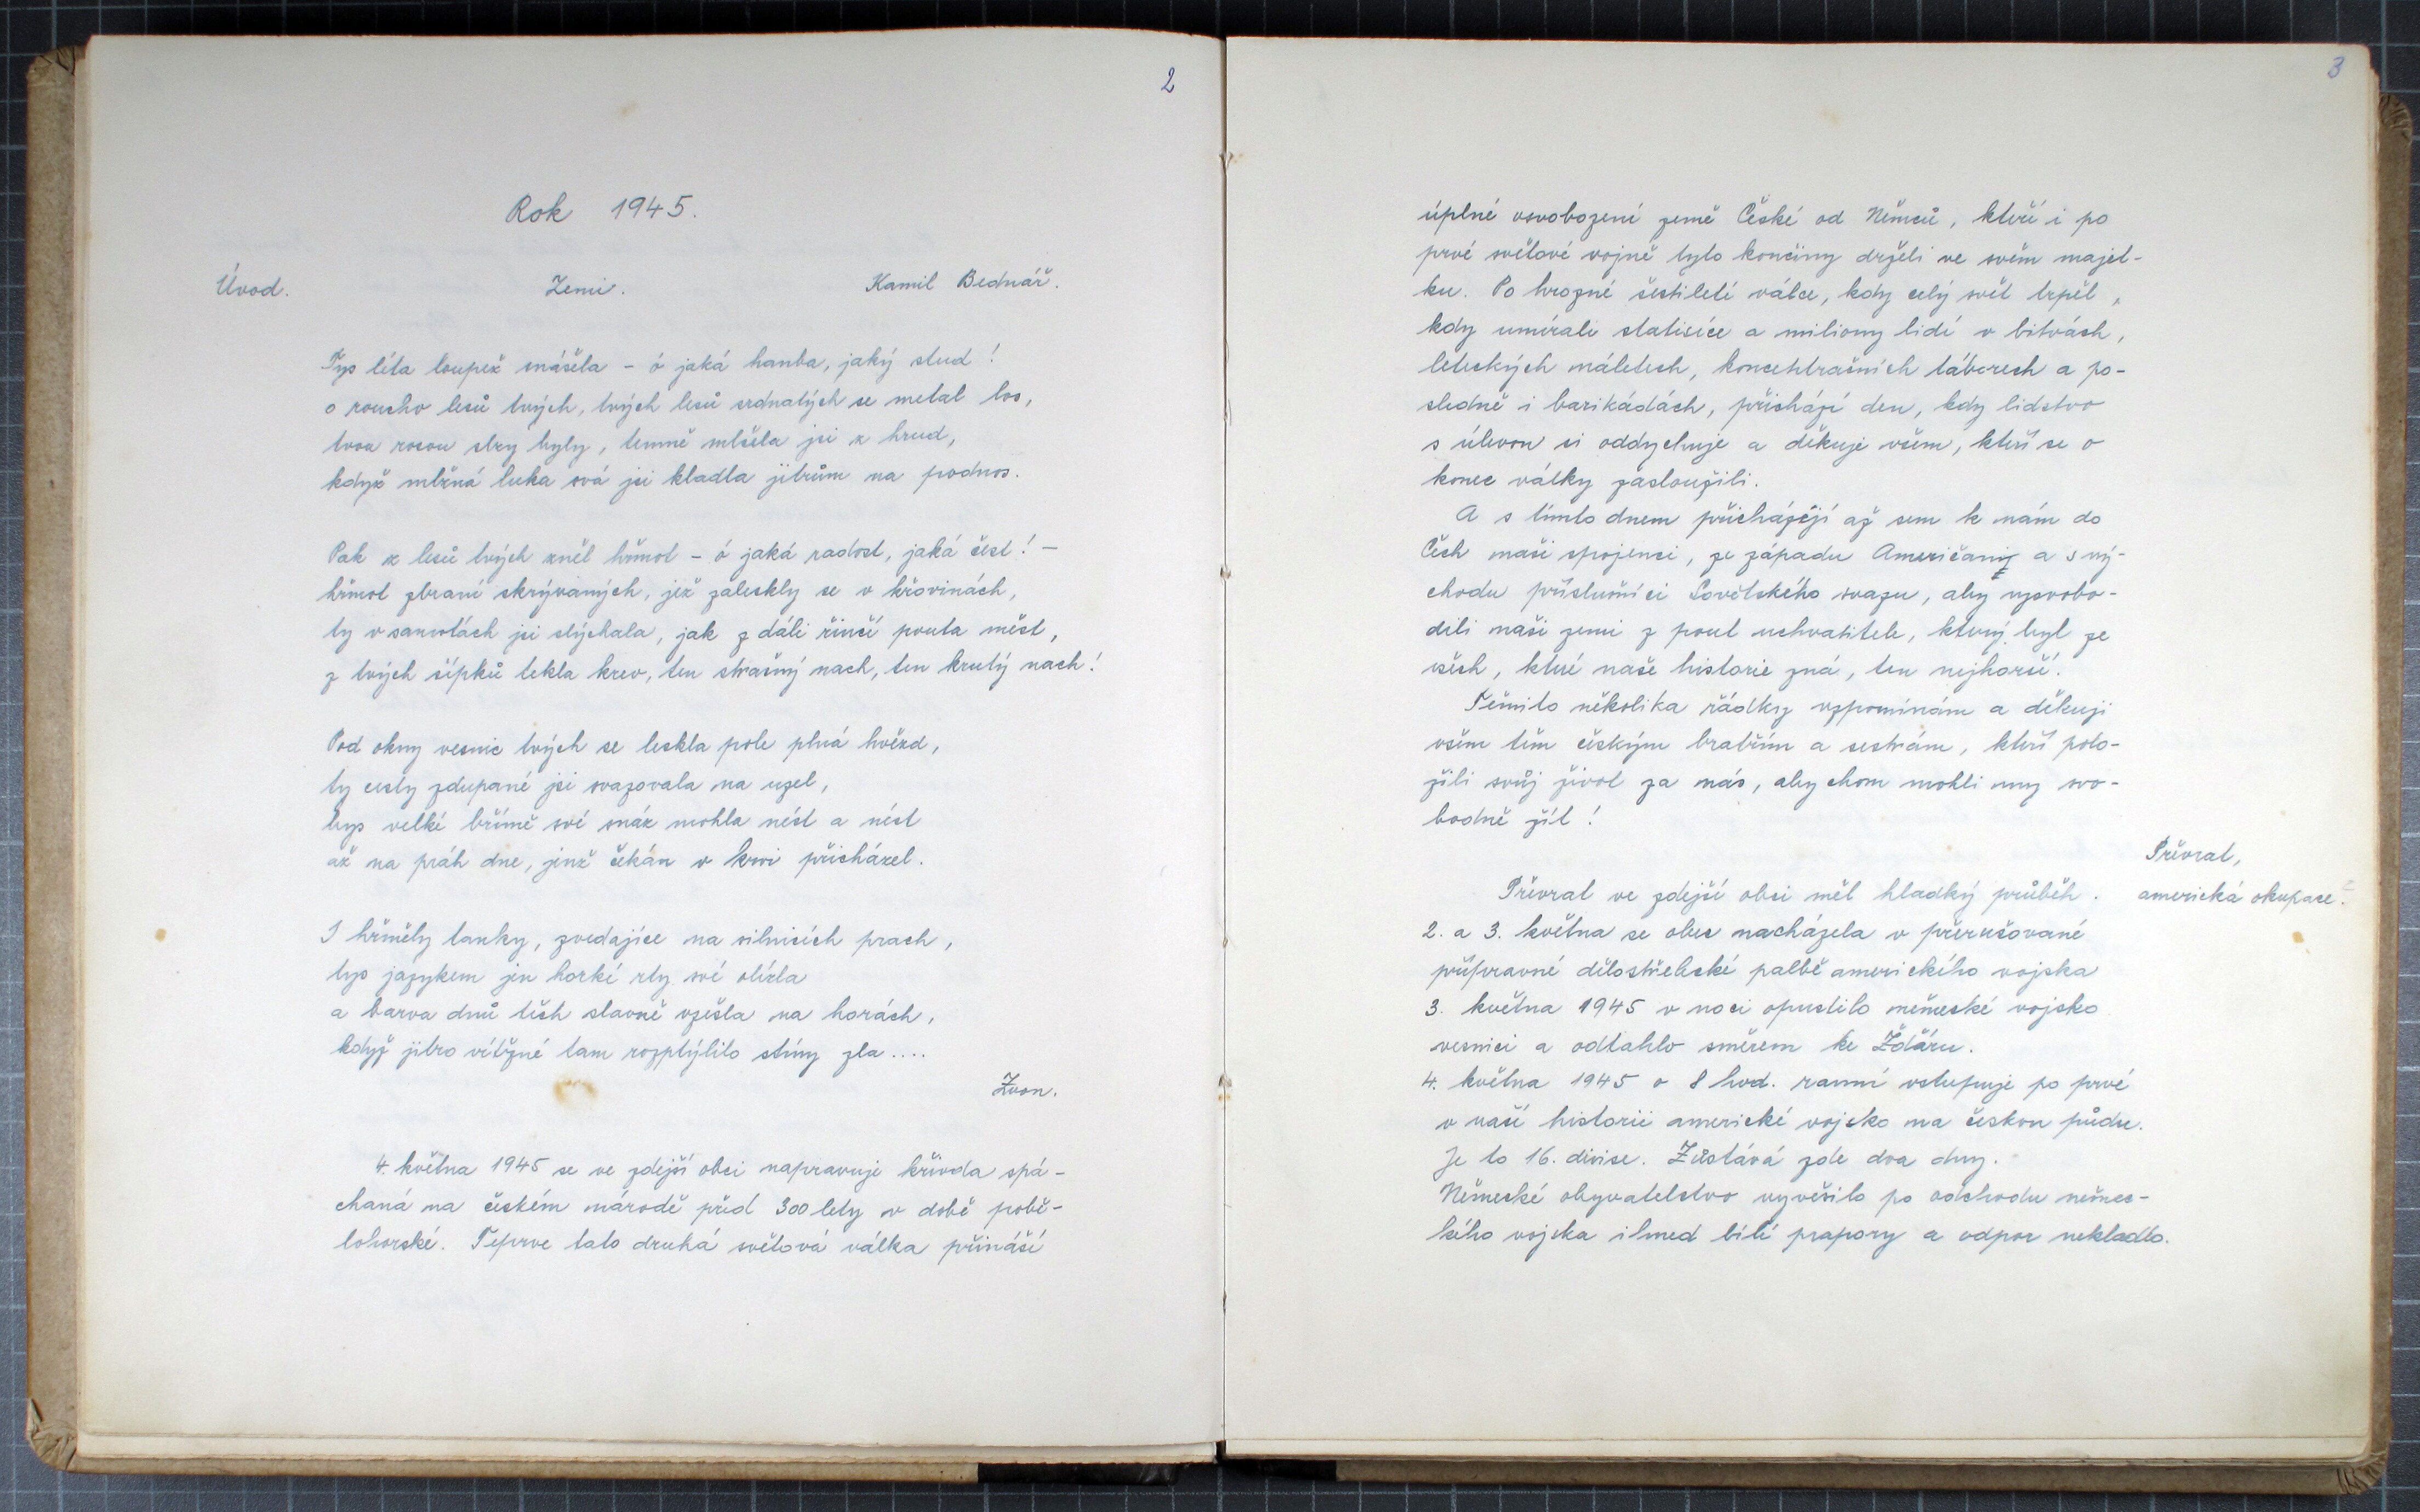 2
Rok 1945.
Úvod. Zemi. Kamil Bednář.
Tys léta loupež snášela - ó jaká hanba, jaký stud!
o roucho lesů tvých, tvých lesů srdnatých se metal los,
tvou rosou slzy byly, temně mlčela jsi z hrud,
když mlžná luka svá jsi kladla jitrům na podnos.
Pak z lesů tvých zněl hřmot - ó jaká radost, jaká čest! -
hřmot zbraní skrývaných, jež zaleskly se v křovinách,
ty v samotách jsi slýchala, jak z dáli řinčí pouta měst,
z tvých šípků tekla krev, ten strašný nach, ten krutý nach!
Pod okny vesnic tvých se leskla pole plná hvězd,
ty cesty zdupané jsi svazovala na uzel,
bys velké břímě své snáz mohla nést a nést
až na práh dne, jenž čekán v krvi přicházel.
I hřměly tanky, zvedajíce na silnicích prach,
tys jazykem jen horké rty své olízla
a barva dnů těch slavně vzešla na horách,
když jitro vítězné tam rozptýlilo stíny zla....
Zvon.
4. května 1945 se ve zdejší obci napravuje křivda spá-
chaná na českém národě před 300 lety v době pobě-
lohorské. Teprve tato druhá světová válka přináší
3
úplné osvobození země České od Němců, kteří i po
prvé světové vojně tyto končiny drželi ve svém majet-
ku. Po hrozné šestileté válce, kdy celý svět trpěl,
kdy umírali statisíce a miliony lidí v bitvách,
leteckých náletech, koncentračních táborech a po-
sledně i barikádách, přichází den, kdy lidstvo
s úlevou si oddychuje a děkuje všem, kteří se o
konec války zasloužili.
A s tímto dnem přicházejí až sem k nám do
Čech naši spojenci, ze západu Američany a s vý-
chodu příslušníci Sovětského svazu, aby vysvobo-
dili naši zemi z pout uchvatitele, který byl ze
všech, které naše historie zná, ten nejhorší.
Těmito několika řádky vzpomínám a děkuji
všem těm českým bratřím a sestrám, kteří polo-
žili svůj život za nás, aby chom mohli my svo-
bodně žít!
Převrat,
americká okupace.
Převrat ve zdejší obci měl hladký průběh.
2. a 3. května se obec nacházela v přerušované
přípravné dělostřelecké palbě amerického vojska
3. května 1945 v noci opustilo německé vojsko
vesnici a odtáhlo směrem ke Žďáru.
4. května 1945 o 8 hod. ranní vstupuje po prvé
v naší historii americké vojsko na českou půdu.
Je to 16. divise. Zůstává zde dva dny.
Německé obyvatelstvo vyvěsilo po odchodu němec-
kého vojska ihned bílé prapory a odpor nekladlo.